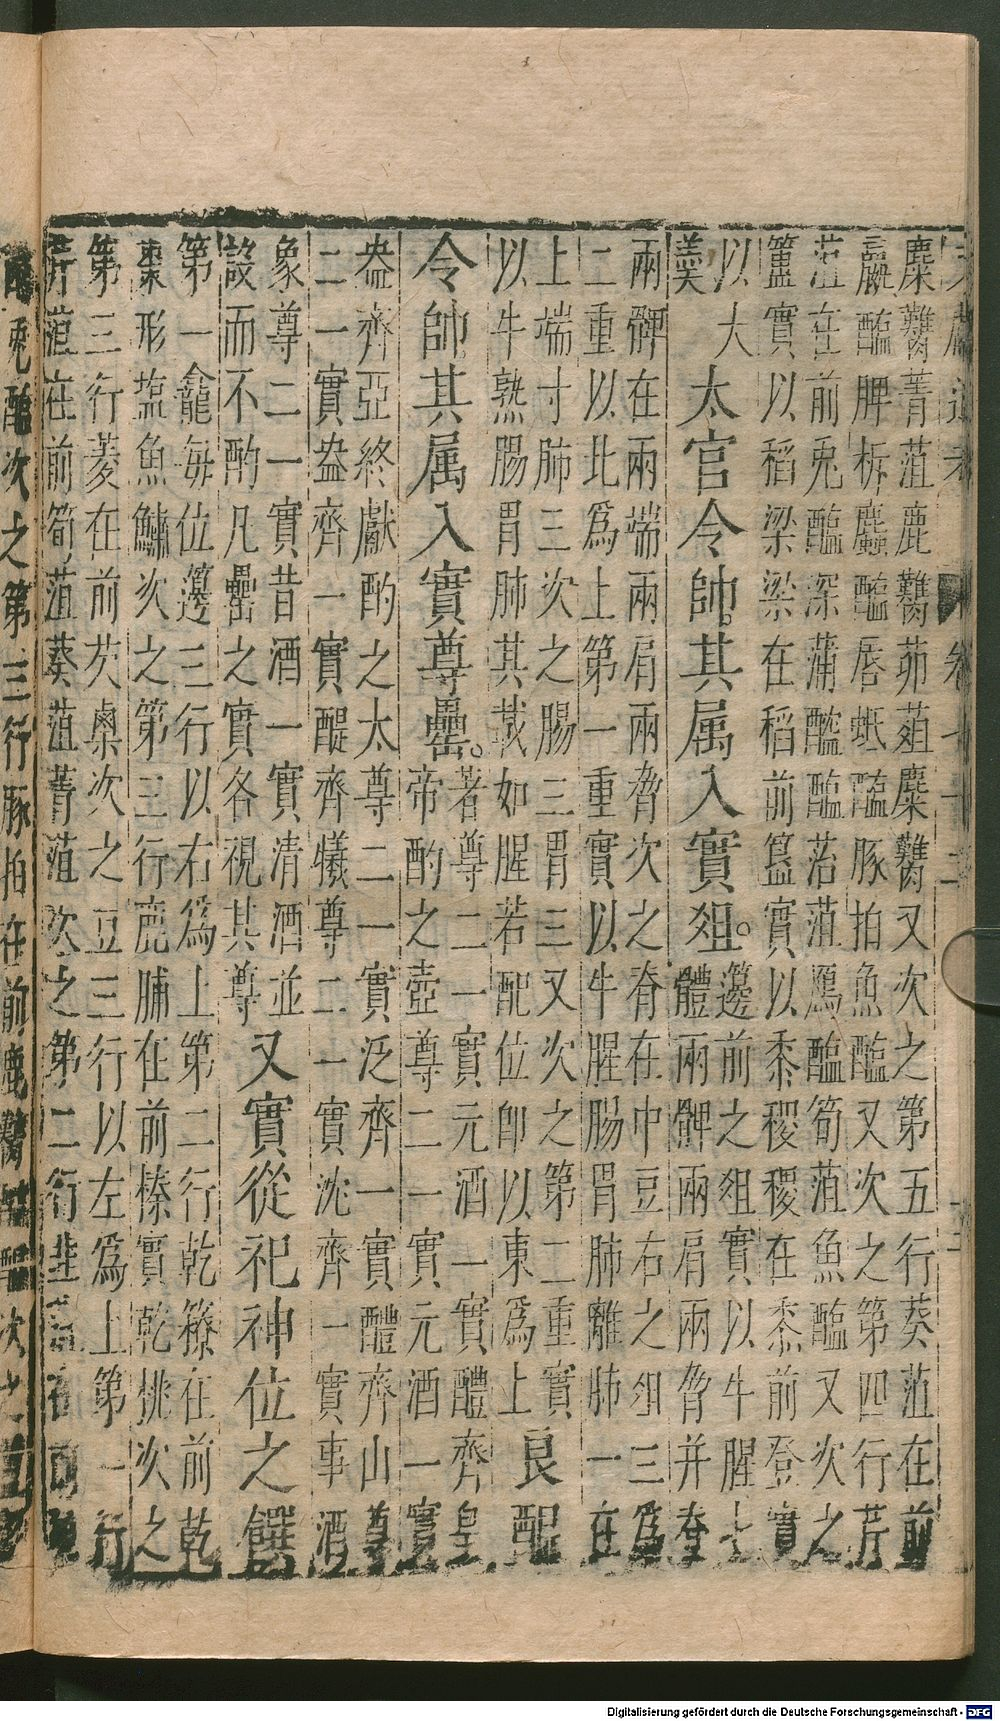 麋臡菁菹鹿臡茆葅麋臡又次之第五行葵菹在前
蠃醢脾析蠯醢唇蚳醢豚拍魚醢又次之第四行芹
菹在前兎醢深蒲醓醢菭菹鴈醢筍菹魚醢又次之
簠實以稻梁梁在稻前簋實以黍稷稷在黍前登實
以大
羹
太官令帥其属入實爼。
籩前之爼實以牛腥七
體兩髀兩肩兩脅并脊
兩髀在兩端兩肩兩脅次之脊在中豆右之爼三爲
二重以北爲上第一重實以牛腥腸胃肺離肺一在
上端寸肺三次之腸三胃三又次之第二重實
以牛熟腸胃肺其載如腥若配位卽以東爲上
良醖
令帥其属入實尊罍。
著尊二一實元酒一實醴齊皇
帝酌之壺尊二一實元酒一實
盎齊亞終獻酌之太尊二一實泛齊一實醴齊山尊
二一實盎齊一實醍齊犧尊二一實沈齊一實事酒
象尊二一實昔酒一實清酒並
設而不酌凡罍之實各視其尊
又實從祀神位之饌
第一龕每位籩三行以右爲上第二行乾䕩在前乾
棗形塩魚鱐次之第三行鹿脯在前榛實乾桃次之
第三行菱在前芡㮚次之豆三行以左爲上第一行
芹菹在前筍菹葵菹菁菹次之第二行韭
兎醢次之第三行豚拍在前鹿臡
Digitalisierung gefördert durch die Deutsche Forschungsgemeinschaft - DFG